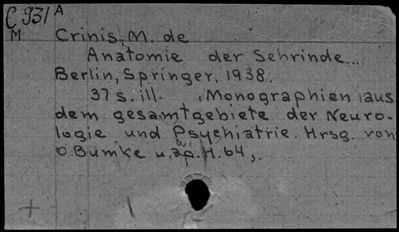 C 931 A
M Crinis, M. de
Anatomie der Sehrinde...
Berlin, Springer, 1938.
37 s. ill. (Monographien aus
dem gesamtgebiete der Neuro-
logie und Psychiatrie. Hrsg. von
O. Bumke u. a. H. 64).